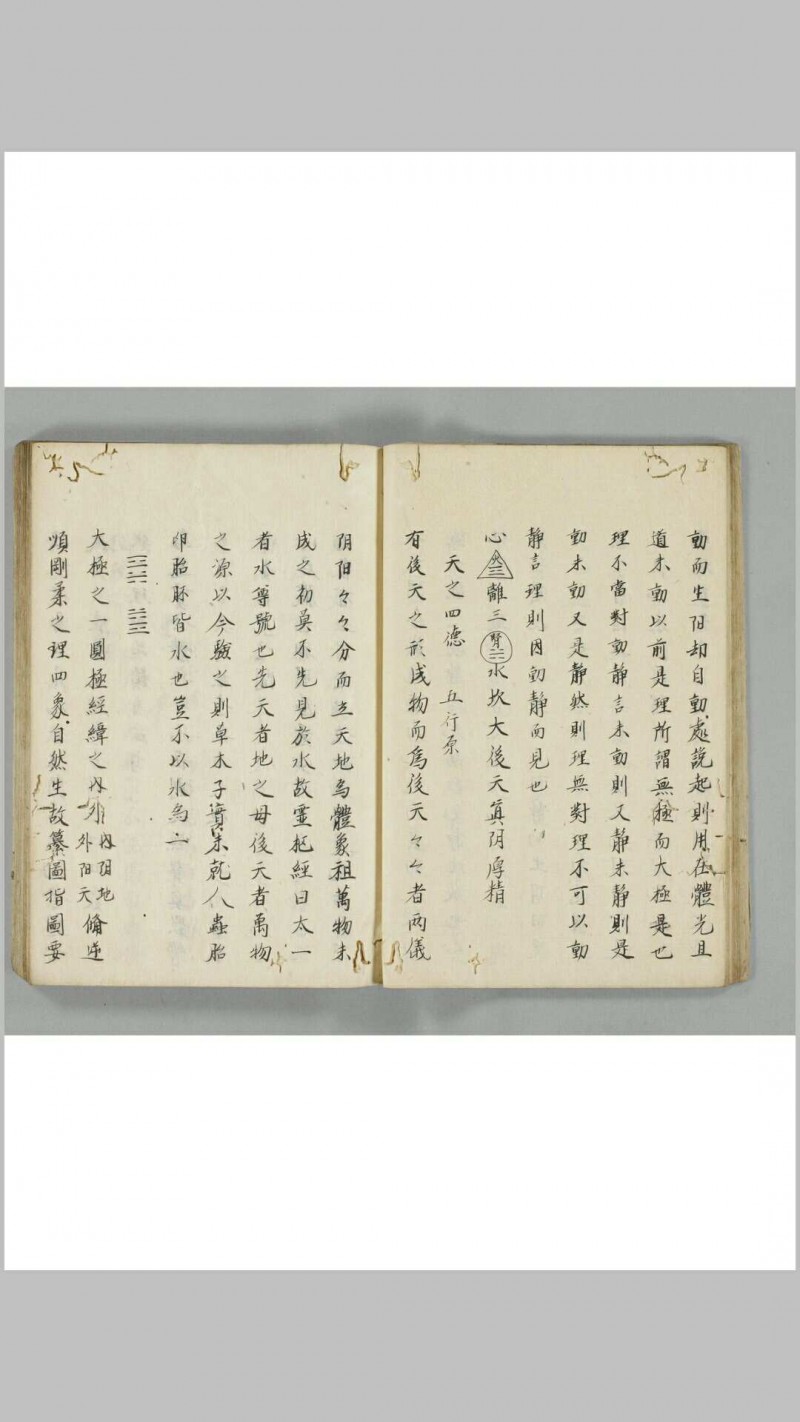 動而生阳却自動處説起則用在體光且
道未動以前是理所謂無極而大極是也
理不當對動静言未動則又静未静則是
動未動又是静然則理無對理不可以動
静言理則因動静而見也
心火三離三腎二水坎大後天真阴厚精
天之四德 五行原
有後天之形成物而爲後天々々者两儀
阴阳々々分而立天地為體象祖萬物未
成之初莫不先見於水故靈樞經曰太一
者水尊號也先天者地之母後天者萬物
之源以今驗之則草木子實未就人蟲胎
卵胎胚皆水也豈不以水為一
大極之一圓極經緯之内外内阴地外阳天脩逆
順剛柔之理四象自然生故纂圖指圖要